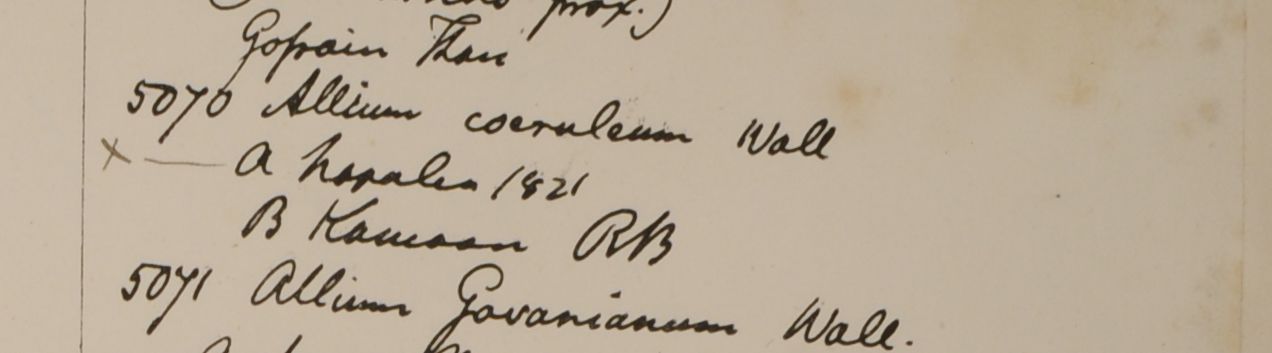 prox.)
Gosain Than
5070 Allium coeruleum Wall
x — A Napalia 1821
B Kamaon RB
5071 Allium Govanianum Wall.